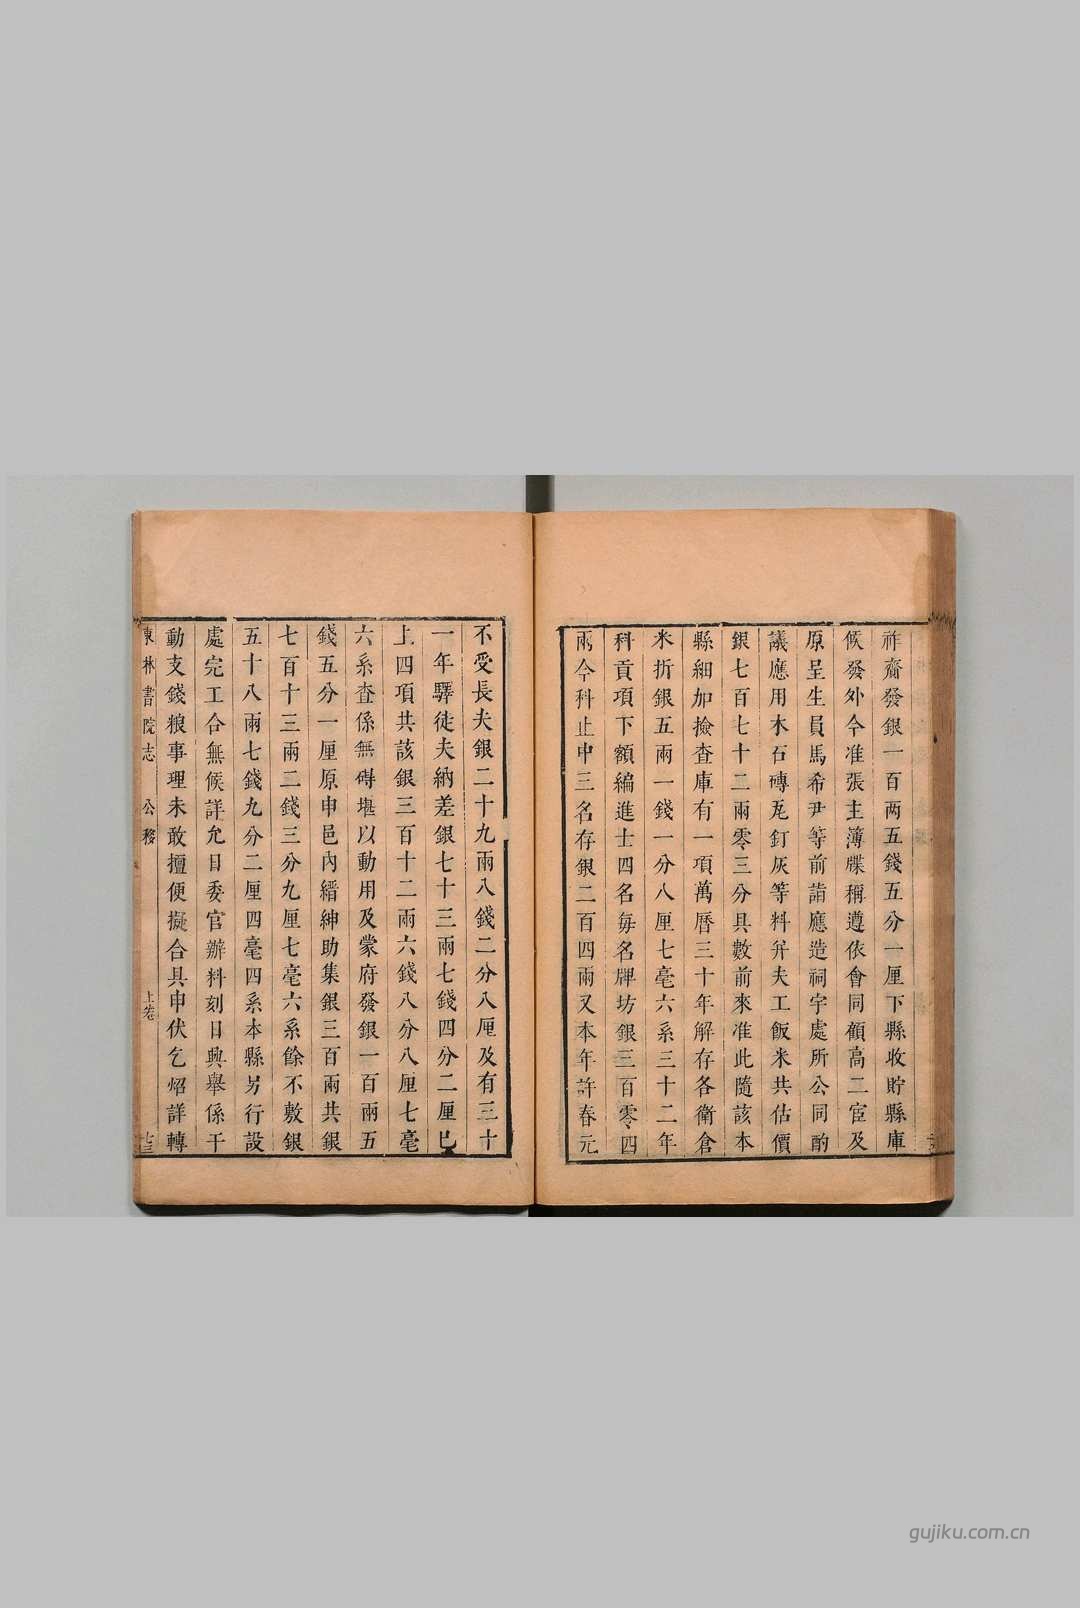 祚齋發銀一百两五錢五分一厘下縣收貯縣庫
候發外今准張主簿牒稱遵依會同顧高二宦及
原呈生員馬希尹等前詣應造祠宇處所公同酌
議應用木石磚瓦釘灰等料幷夫工飯米共估價
銀七百七十二兩零三分具數前來准此隨該本
縣細加撿查庫有一項萬曆三十年解存各衛倉
米折銀五兩一錢一分八厘七毫六系三十二年
科貢項下額編進士四名每名牌坊銀三百零四
兩今科止中三名存銀二百四兩又本年許春元
不受長夫銀二十九兩八錢二分八厘及有三十
一年驛徒夫納差銀七十三兩七錢四分二厘巳
上四項共該銀三百十二兩六錢八分八厘七毫
六系查係無碍堪以動用及蒙府發銀一百兩五
錢五分一厘原申邑內縉紳助集銀三百兩共銀
七百十三兩二錢三分九厘七毫六系餘不敷銀
五十八兩七錢九分二厘四毫四系本縣另行設
處完工合無候詳允日委官辦料刻日興舉係干
動支錢粮事理未敢擅便擬合具申伏乞炤詳轉
東林書院志 公移 上卷 十三
gujiku.com.cn